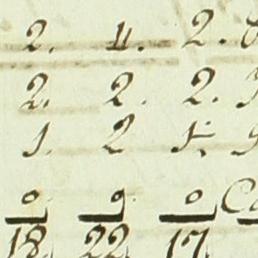 2. 4. 2.
2. 2. 2.
1. 2 1.
0 9. 0
18. 22 17